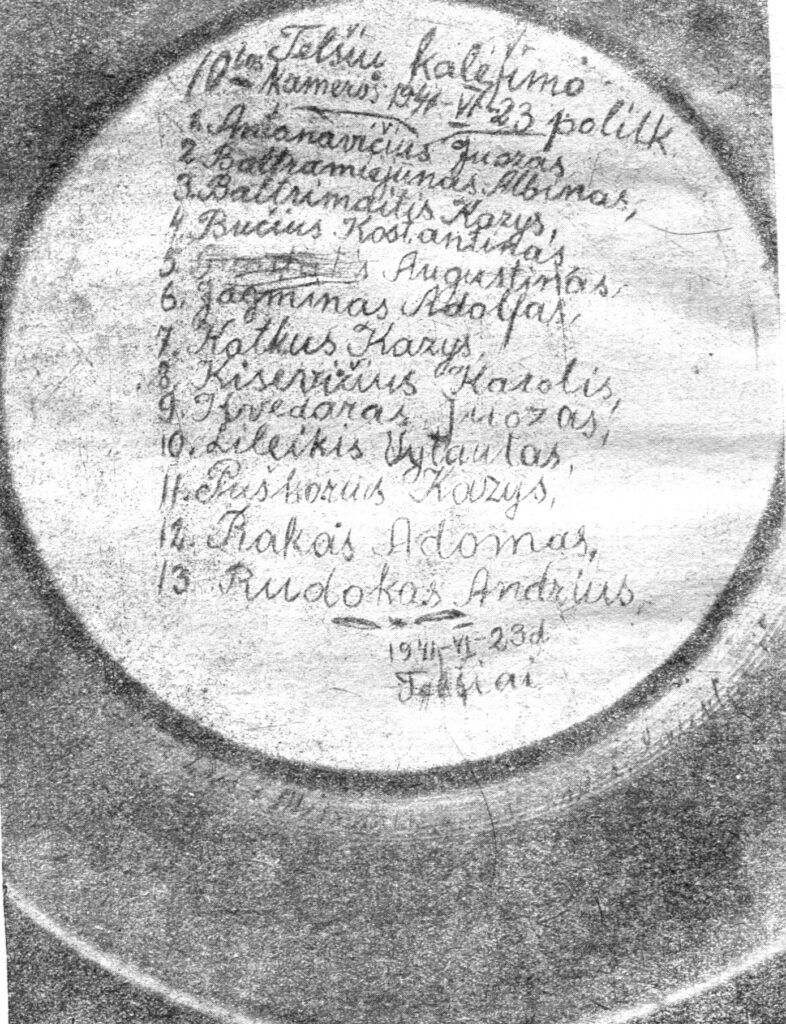 Telšiu kalėjimo
10-tos kameros 1941-VI-23 politk.
1. Antanavičius Juozas,
2. Baltramiejunas Albinas,
3. Baltrimaitis Kazys,
4. Bučius Kostantinas,
5. Augustinas,
6. Jagminas Adolfas,
7. Katkus Kazys,
8. Kisevižius Karolis,
9. Juozas,
10. Lileikis Vytautas,
11. Puškorius Kazys,
12. Rakas Adomas,
13 Rudokas Andrius,
1941-VI-23d
Telšiai